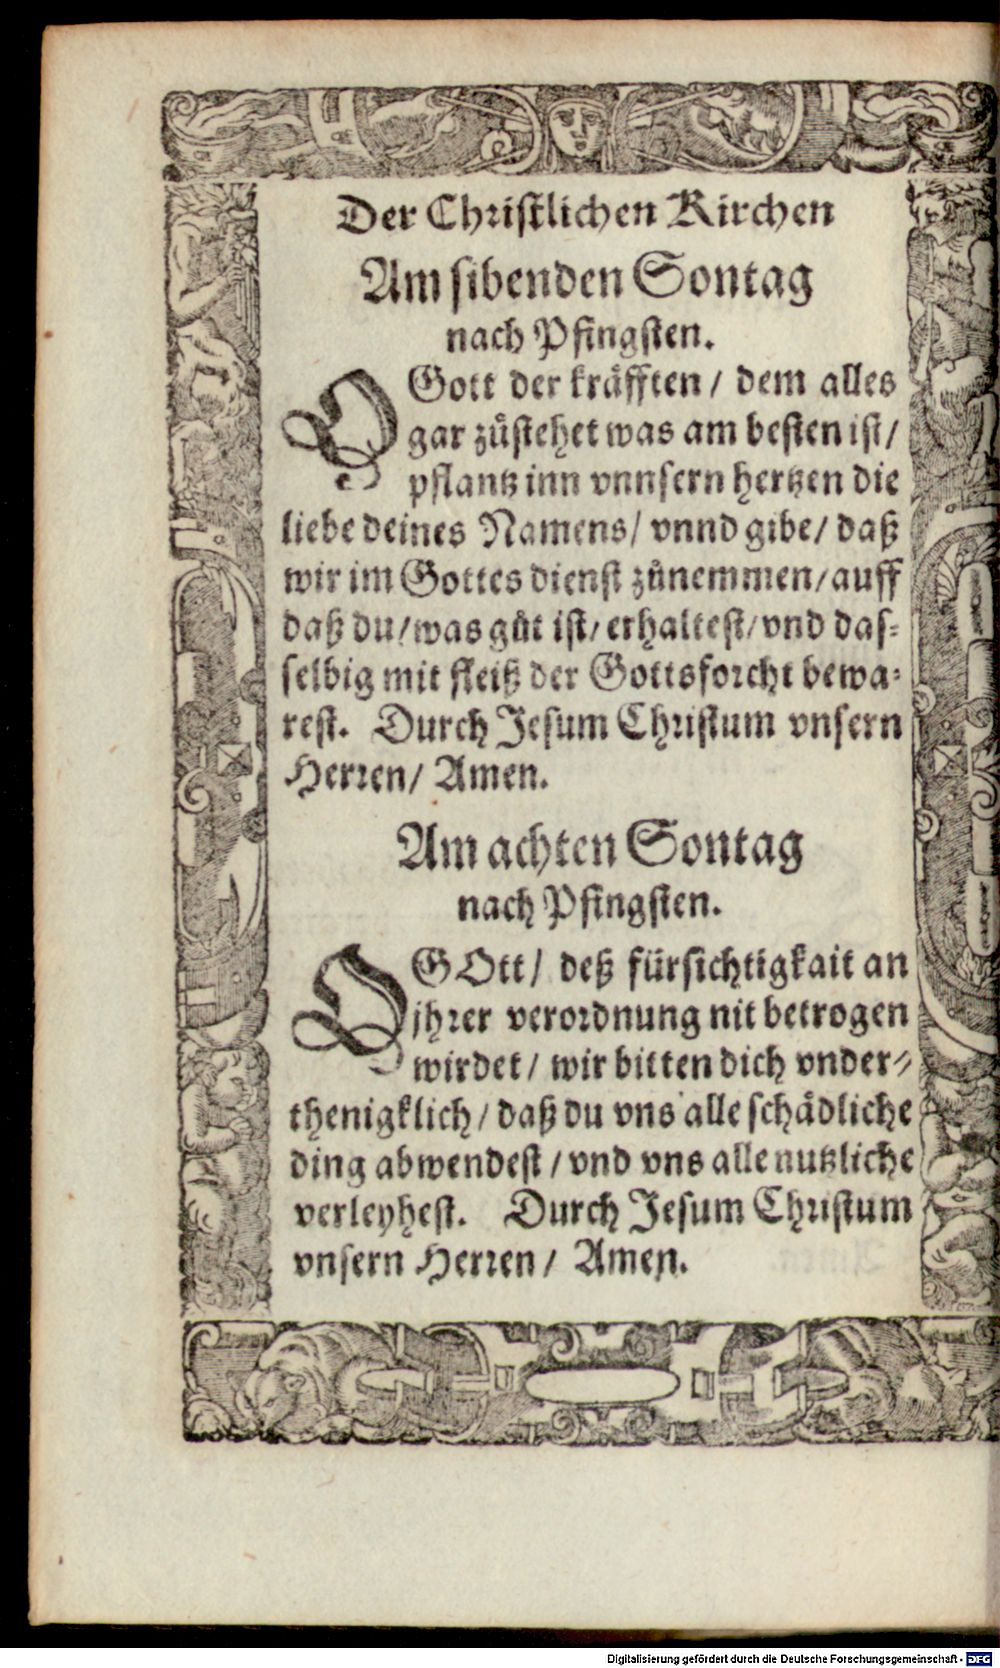 Der Christlichen Kirchen
Am sibenden Sontag
nach Pfingsten.
O Gott der kräfften / dem alles
gar zůstehet was am besten ist /
pflantz inn vnnsern hertzen die
liebe deines Namens / vnnd gibe / daß
wir im Gottes dienst zůnemmen / auff
daß du / was gůt ist / erhaltest / vnd das-
selbig mit fleiß der Gottsforcht bewa-
rest. Durch Jesum Christum vnsern
Herren / Amen.
Am achten Sontag
nach Pfingsten.
O GOtt / deß fürsichtigkait an
jhrer verordnung nit betrogen
wirdet / wir bitten dich vnder-
thenigklich / daß du vns alle schädliche
ding abwendest / vnd vns alle nutzliche
verleyhest. Durch Jesum Christum
vnsern Herren / Amen.
Digitalisierung gefördert durch die Deutsche Forschungsgemeinschaft - DFG